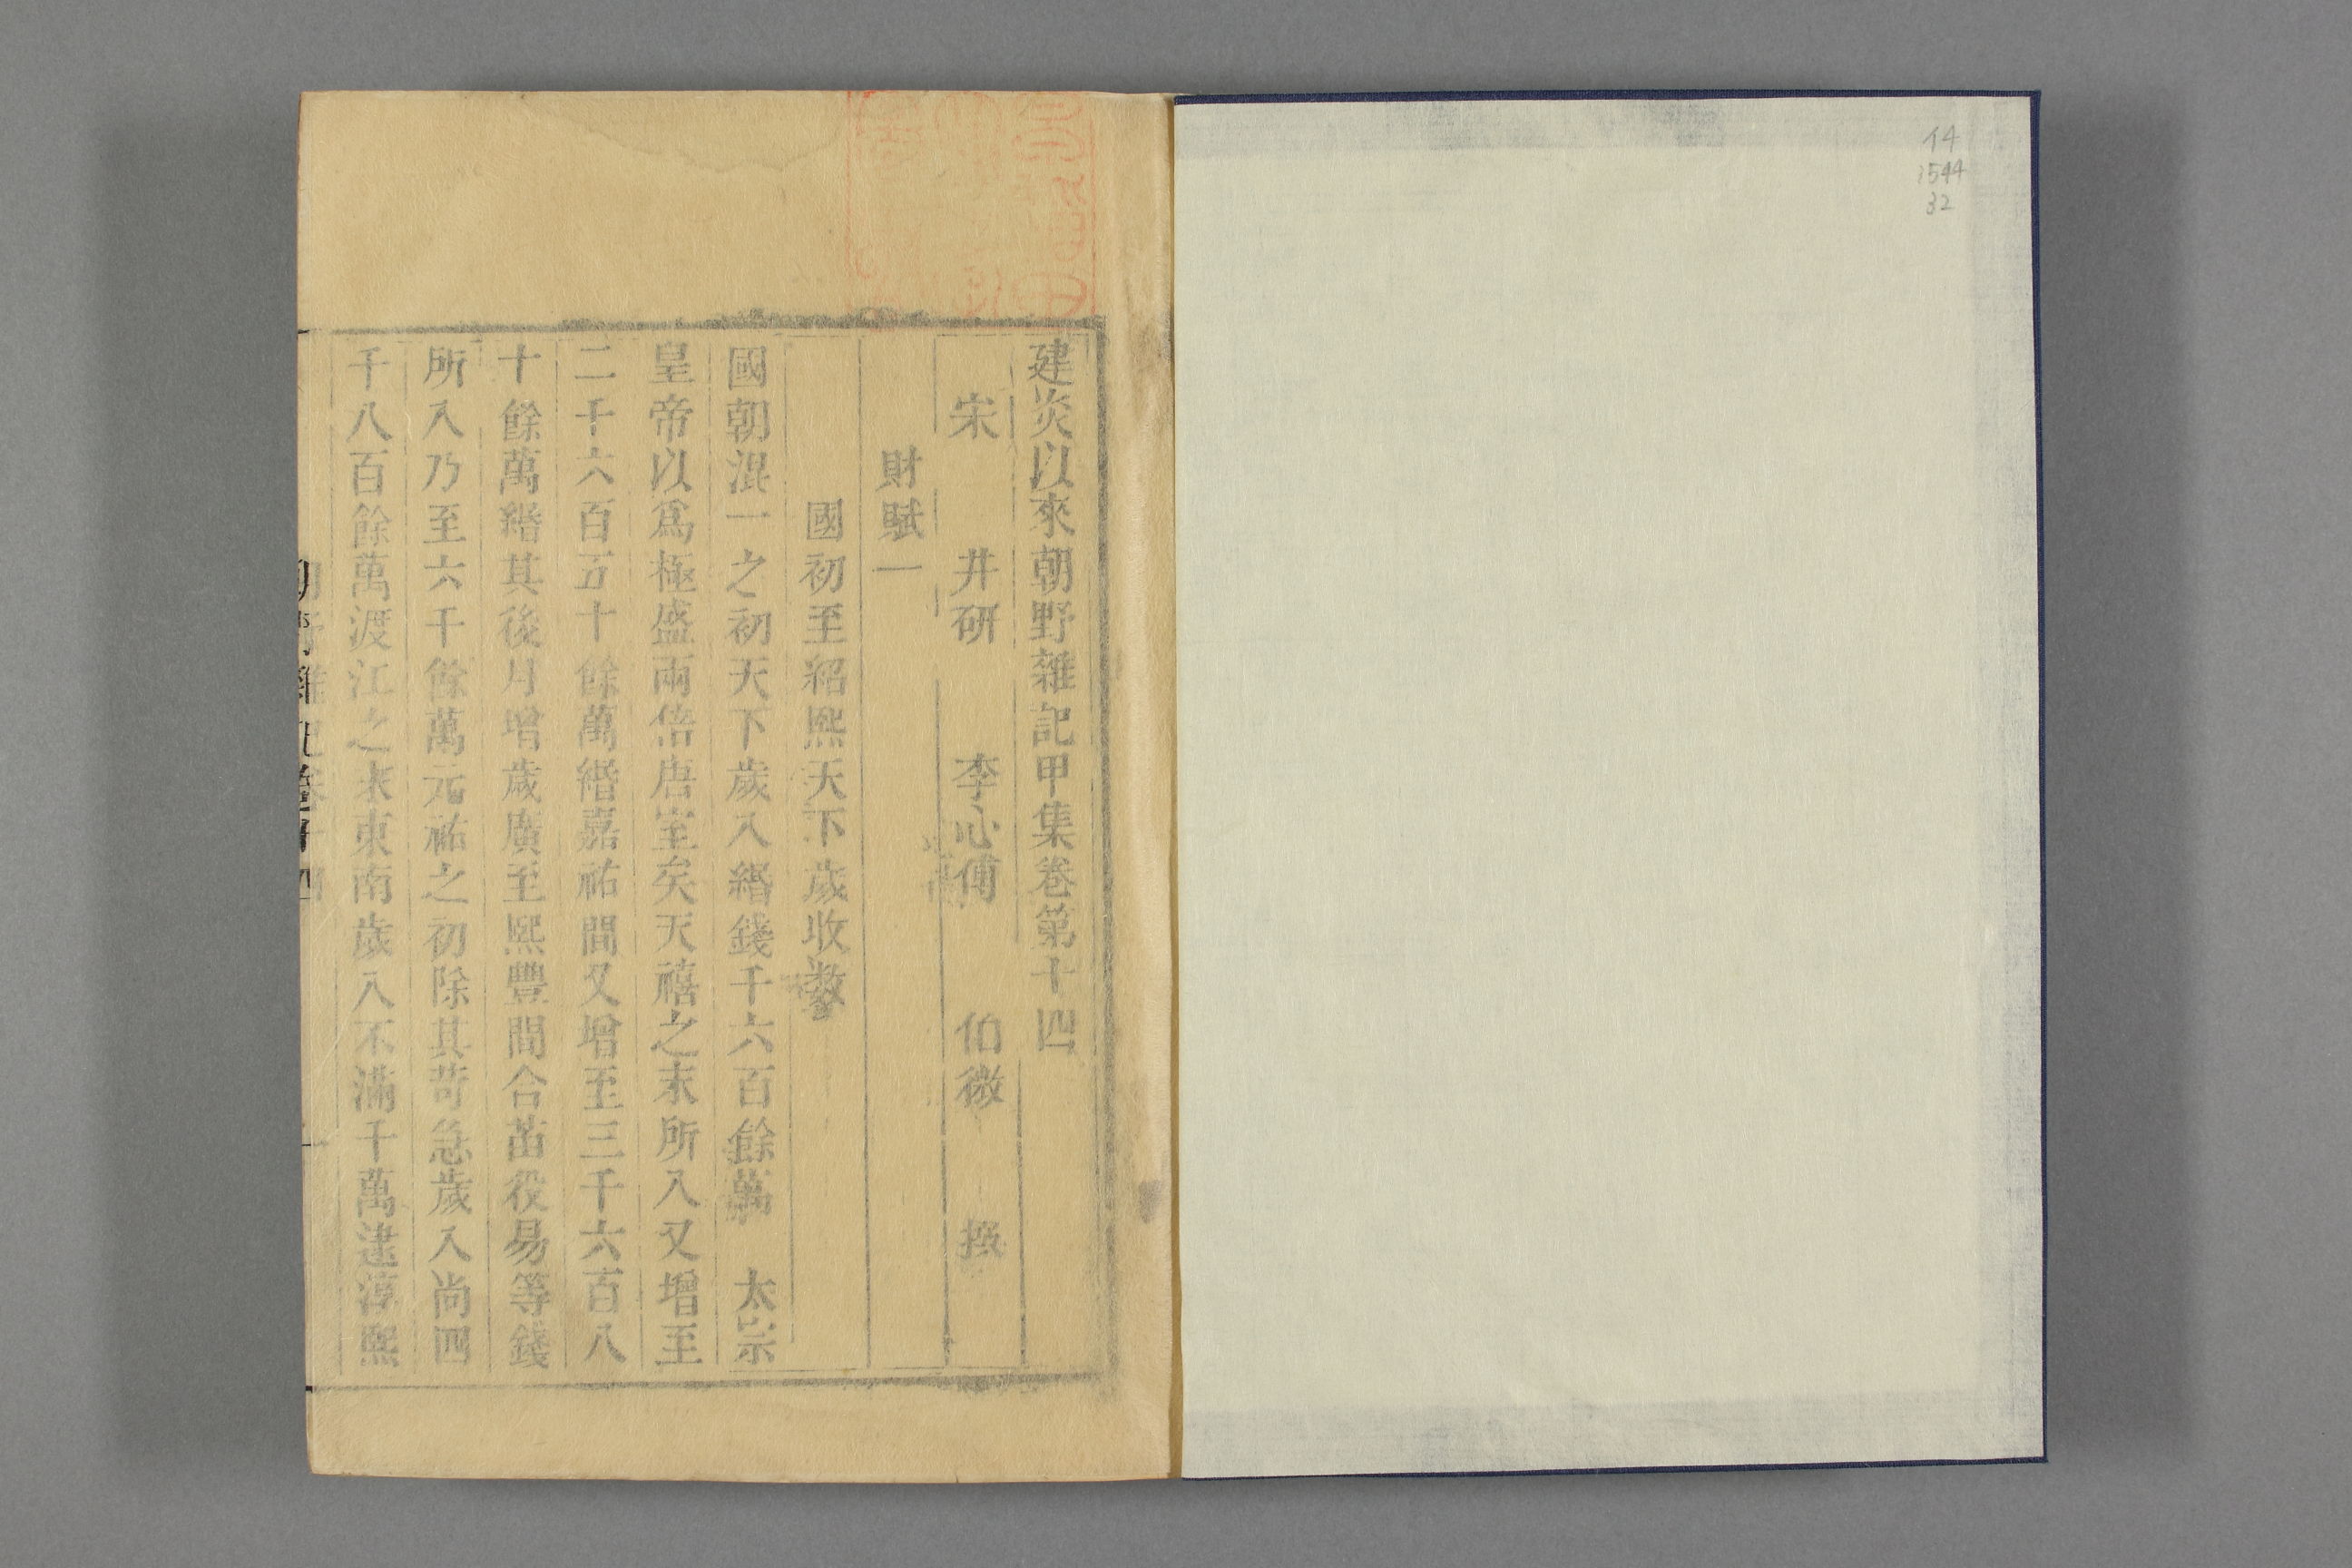 建炎以來朝野雜記甲集卷第十四
宋 井研 李心傳 伯微 撰
財賦一
國初至紹熙天下歲收數
國朝混一之初天下歲入緡錢千六百餘萬 太宗
皇帝以爲極盛兩倍唐室矣天禧之末所入又增至
二千六百五十餘萬緡嘉祐間又增至三千六百八
十餘萬緡其後月增歲廣至熙豐間合苗役易等錢
所入乃至六千餘萬元祐之初除其苛急歲入尚四
千八百餘萬渡江之末東南歲入不滿千萬逮淳熙
朝野雜記卷十四
一
14
1544
32